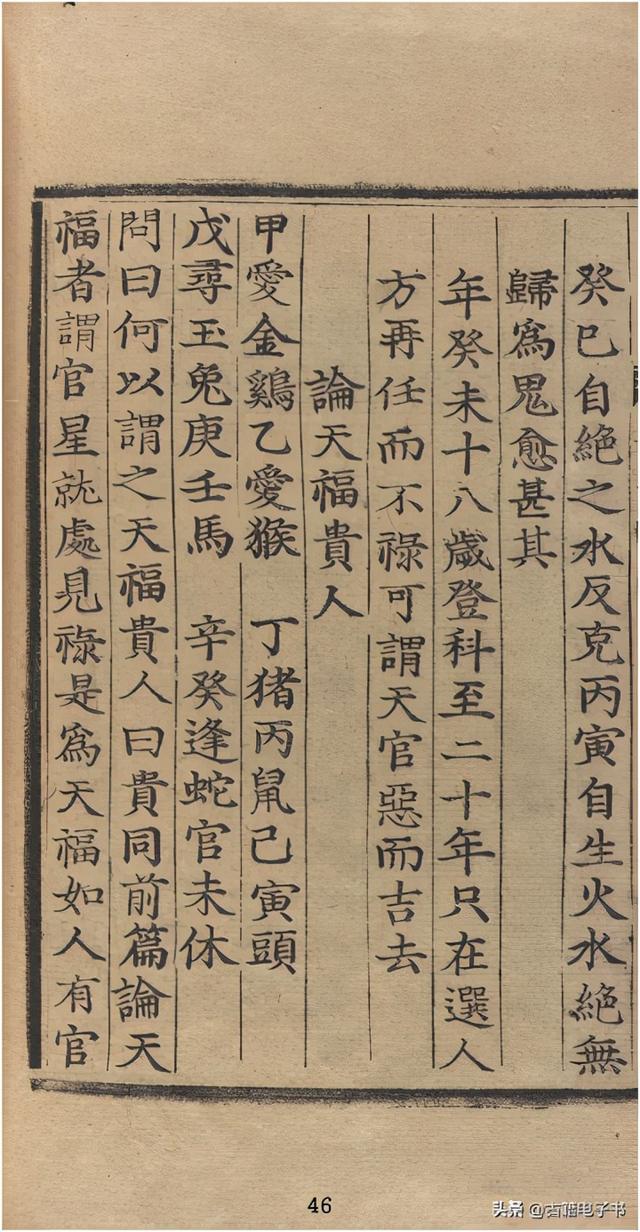 癸巳自絶之水反克丙寅自生火水絶無
歸爲鬼愈甚其
年癸未十八歲登科至二十年只在選人
方再任而不祿可謂天官惡而吉去
論天福貴人
甲愛金鷄乙愛猴　丁猪丙鼠己寅頭
戊尋玉兔庚壬馬　辛癸逢蛇官未休
問曰何以謂之天福貴人曰貴同前篇論天
福者謂官星就處見祿是爲天福如人有官
46
头条 @古籍电子书